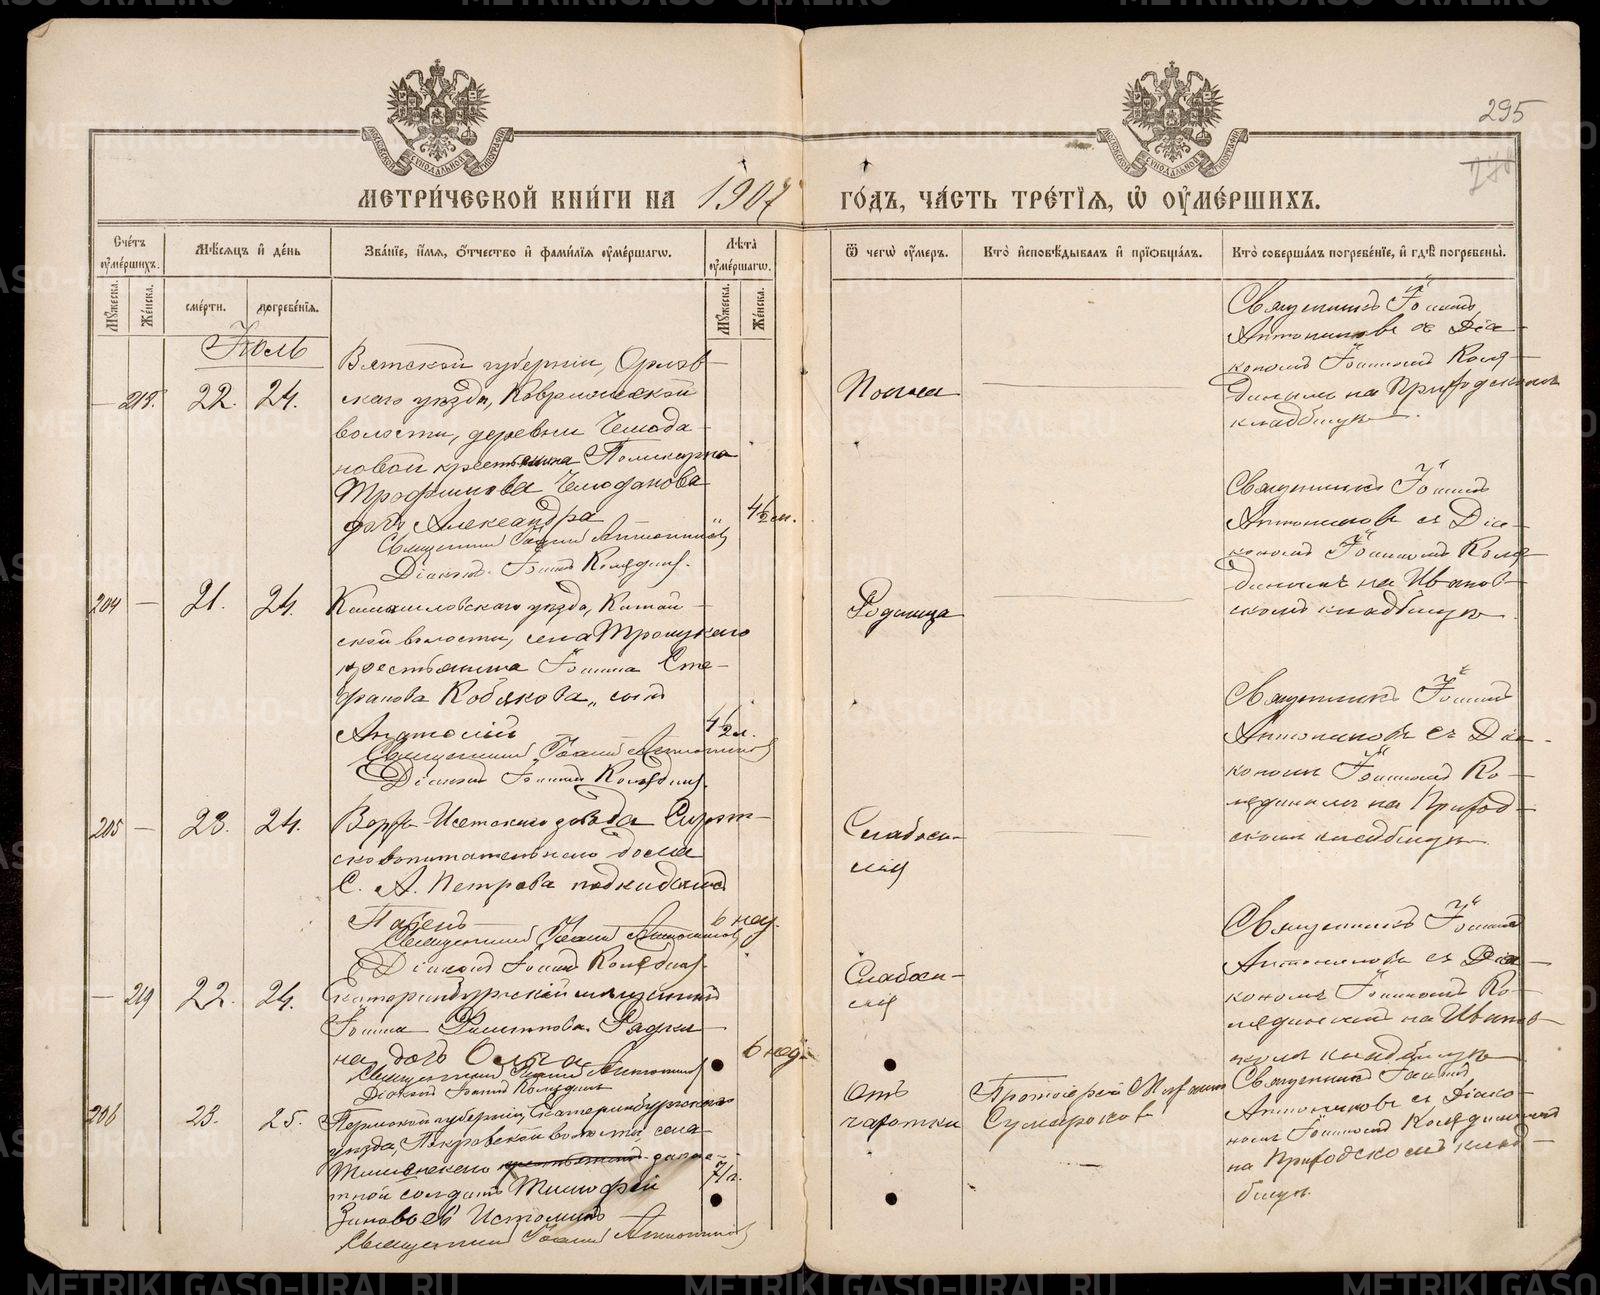 295
МЕТРИ́ЧЕСКОЙ КНИ́ГИ НА 1907 ГО́ДЪ, ЧА́СТЬ ТРЕ́ТІЯ, Ѡ ОУМЕ́РШИХЪ.
Сче́тъ оуме́ршихъ.
Мѣ́сяцъ и де́нь
Зва́ніе, и́мя, о́тчество и фами́лія оуме́ршагѡ.
Лѣта̀ оуме́ршагѡ.
Ѿ чегѡ̀ оу́меръ.
Кто̀ исповѣ́дывалъ и пріѻбща́лъ.
Кто̀ соверша́лъ погребе́ніе, и гдѣ̀ погребены̀.
Му́жеска.
Же́нска.
сме́рти.
погребе́нія.
Му́жеска.
Же́нска.
Іюль
— 218. 22. 24.
Вятской губерніи, Орлов-
скаго уѣзда, Ковролинской
волости, деревни Чемода-
новой крестьянина Поликарпа
Трофимова Чемоданова
дочь Александра
4½ м.
Священникъ Іоаннъ Антониновъ
Діаконъ Іоаннъ Колядинъ.
Поноса
Священникъ Іоаннъ
Антониновъ съ Діа-
кономъ Іоанномъ Коля-
динымъ на Приходскомъ
кладбищѣ.
204 — 21. 24.
Камышловскаго уѣзда, Катай-
ской волости, села Троицкаго
крестьянина Іоанна Сте-
фанова Кобякова, сынъ
Анатолій
4½ м.
Священникъ Іоаннъ Антониновъ
Діаконъ Іоаннъ Колядинъ.
Родимца
Священникъ Іоаннъ
Антониновъ съ Діа-
кономъ Іоанномъ Коля-
динымъ на Иванов-
скомъ кладбищѣ.
205 — 23. 24.
Верхъ-Исетскаго завода Сирот-
сковоспитательнаго дома
С. А. Петрова подкидышъ
Павелъ
6 нед.
Священникъ Іоаннъ Антониновъ
Діаконъ Іоаннъ Колядинъ.
Слабоси-
лія
Священникъ Іоаннъ
Антониновъ съ Діа-
кономъ Іоанномъ Ко-
лядинымъ на Приход-
скомъ кладбищѣ.
— 219 22. 24.
Екатеринбургскій мѣщанинъ
Іоанна Филиппова
на дочь Ольга
6 нед.
Священникъ Іоаннъ Антониновъ
Діаконъ Іоаннъ Колядинъ
Слабоси-
лія
Священникъ Іоаннъ
Антониновъ съ Діа-
кономъ Іоанномъ Ко-
лядинымъ на Иванов-
скомъ кладбищѣ
206 23. 25.
Пермской губерніи, Екатеринбургскаго
уѣзда, Покровской волости, села
отставной солдатъ Тимофей
Зиновьевъ Истоминъ
71 г.
Священникъ Іоаннъ Антониновъ
Отъ
чахотки
Протоіерей
Сумароковъ
Священникъ Іоаннъ
Антониновъ съ Діако-
номъ Іоанномъ Колядинымъ
на Приходскомъ клад-
бищѣ.
METRIKI.GASO-URAL.RU